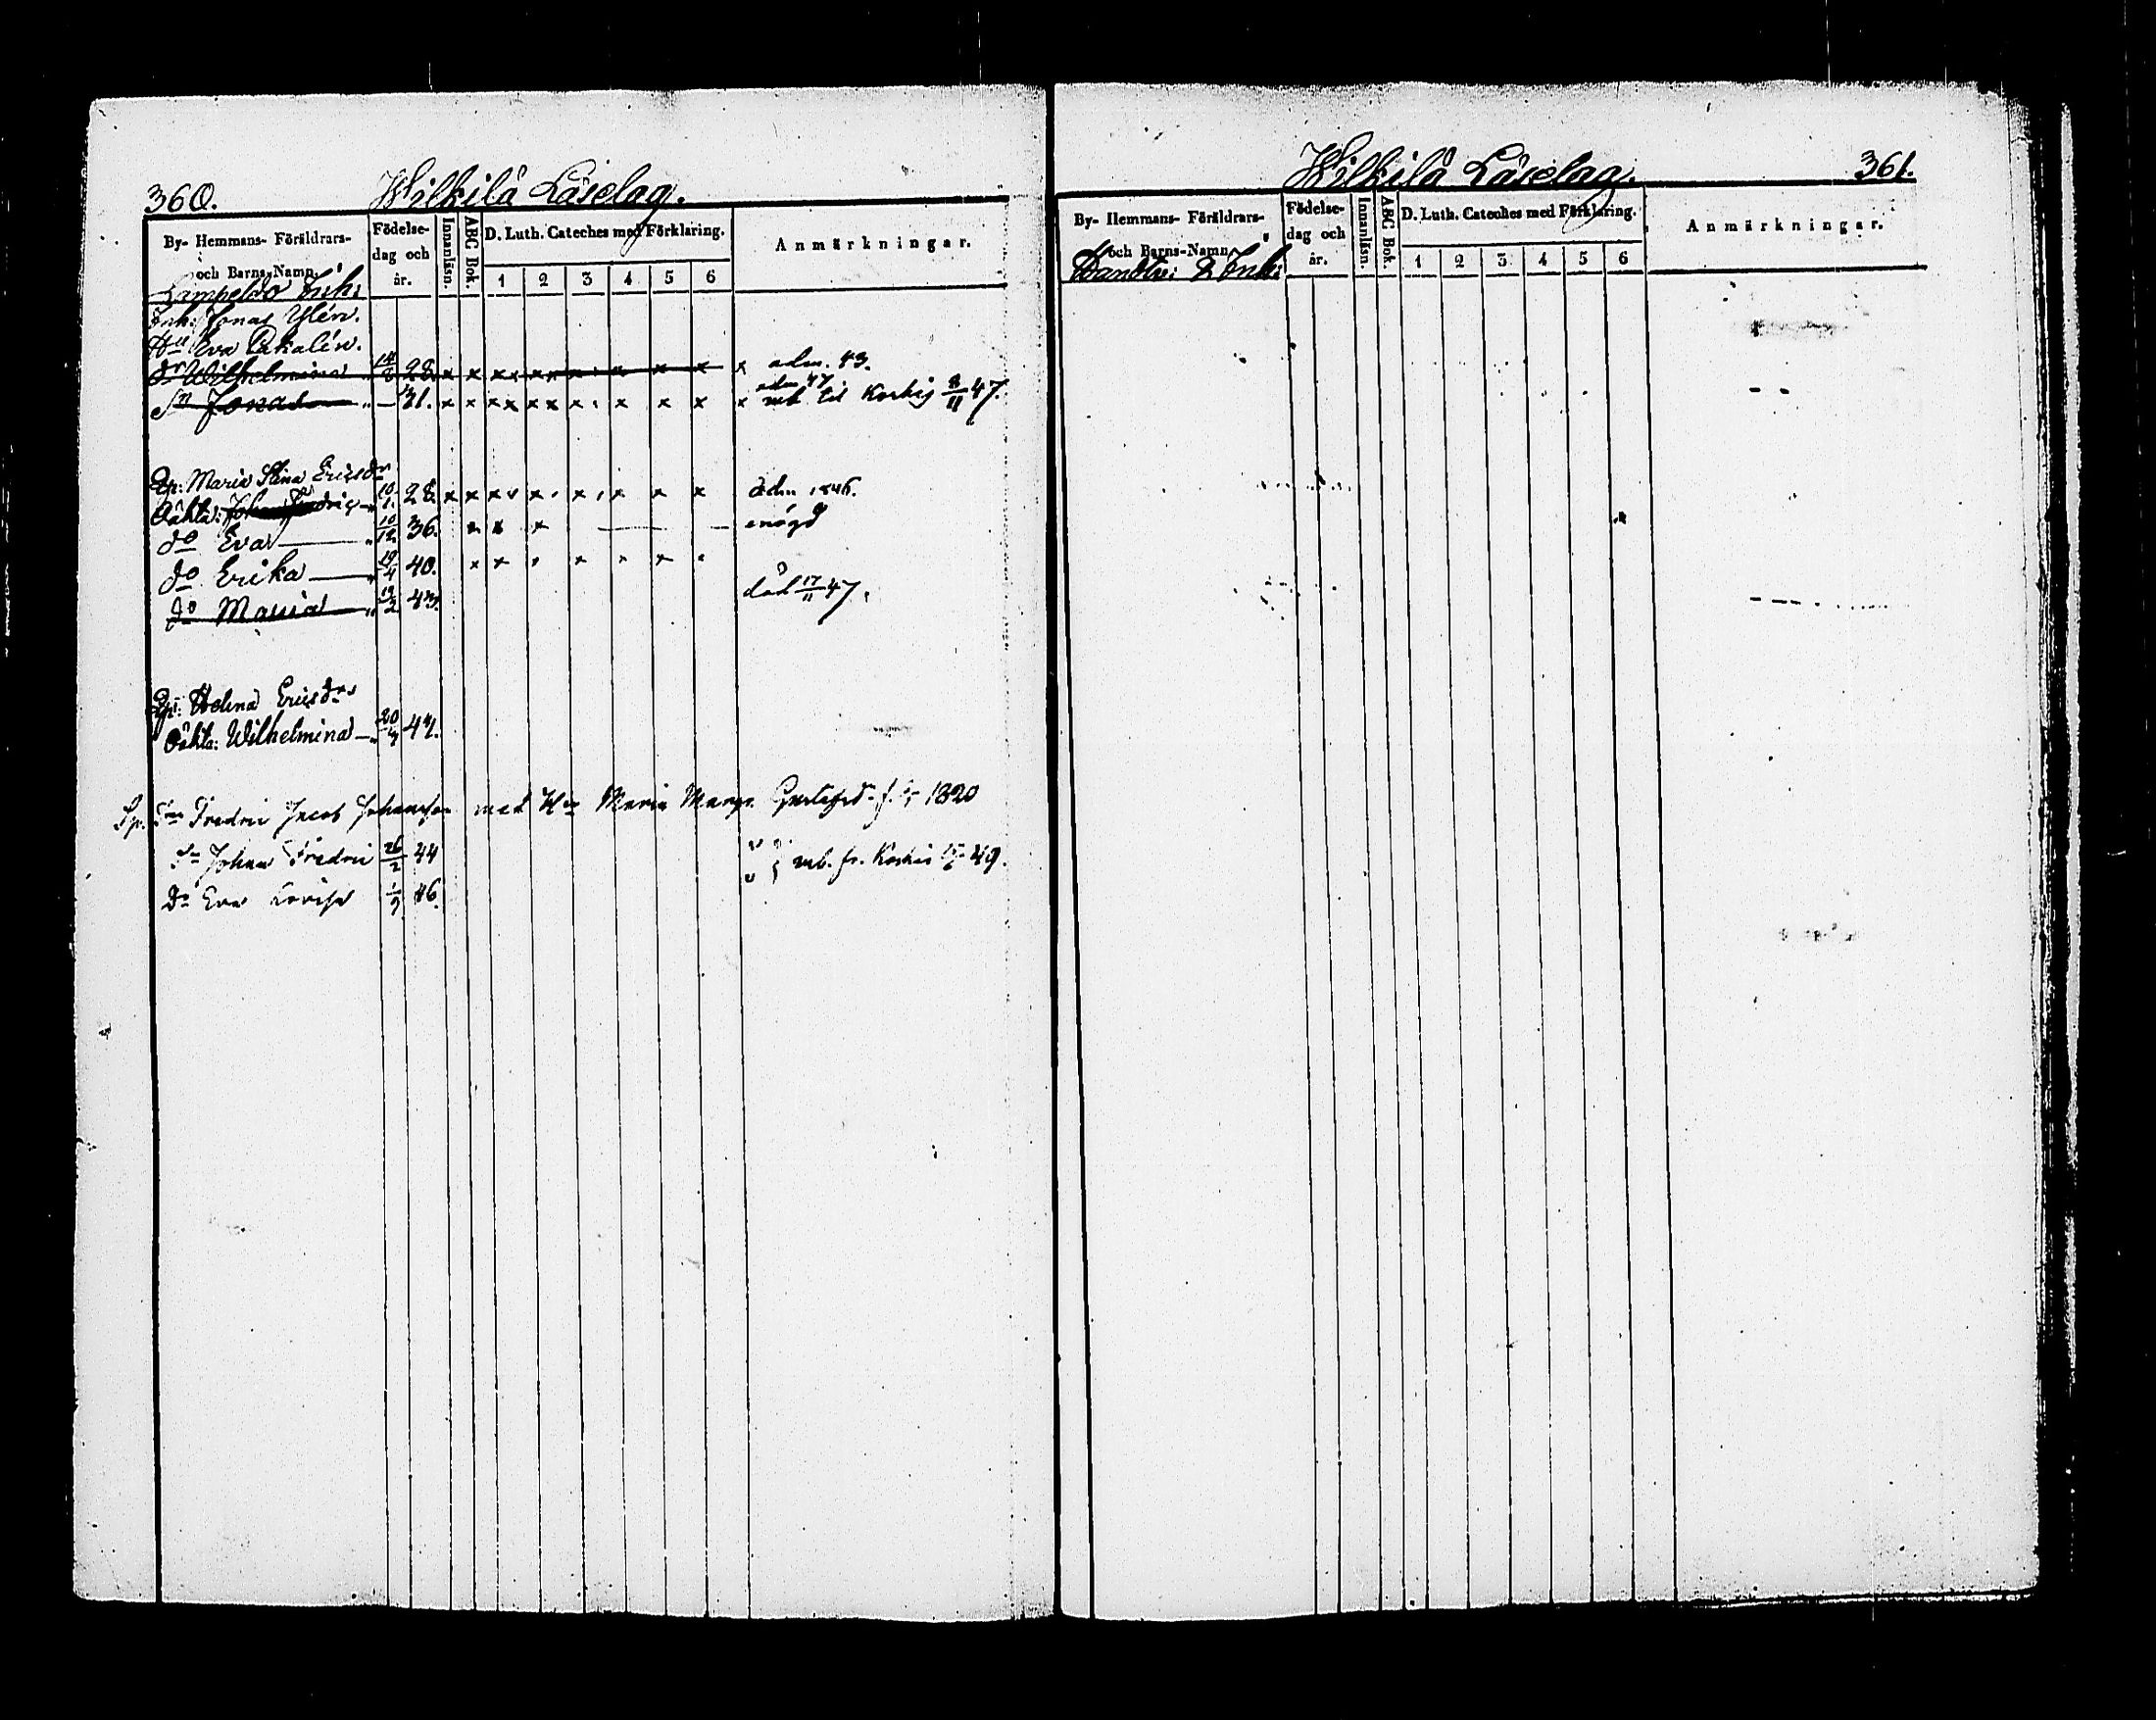 360. Wilkilä Läselag.
By- Hemmans- Föräldrars- och Barns-Namn. Födelse-dag och år. Innanläsn. ABC Bok. D. Luth. Cateches med Förklaring. Anmärkningar.
1 2 3 4 5 6
Lampeldo Inh:
Inh: Jonas Ylén.
Hu Eva Pakalén.
dr Wilhelmina " 14/8 28. x x x x x x x x x x adm. 43.
Sn Jonas " — 31. x x x x x x x x x x x adm 47. utb till Koskis 8/11 47.
Qp: Maria Stina Ericsdr
Oäkta: Johan Fredric 10/1. 28. x x x x x x x x adm 1846.
do Eva — " 10/12 36. x x x — — enögd
do Erika — " 19/4 40. x x x x x
do Maria — " 19/2 43. död 17/11 47.
Qp: Helena Ericsdr
Oäkta: Wilhelmina — " 20/9 47.
Sp. Fredric Jacob Johansson med Hu Maria Margr. Gustafsdr f. 1820
Sn Johan Fredric 26/2 44
" " inb. fr. Koskis 49.
Dr Eva Lovisa 1/9 46.
Wilkilä Läselag. 361.
By- Hemmans- Föräldrars- och Barns-Namn. Födelse-dag och år. Innanläsn. ABC Bok. D. Luth. Cateches med Förklaring. Anmärkningar.
1 2 3 4 5 6